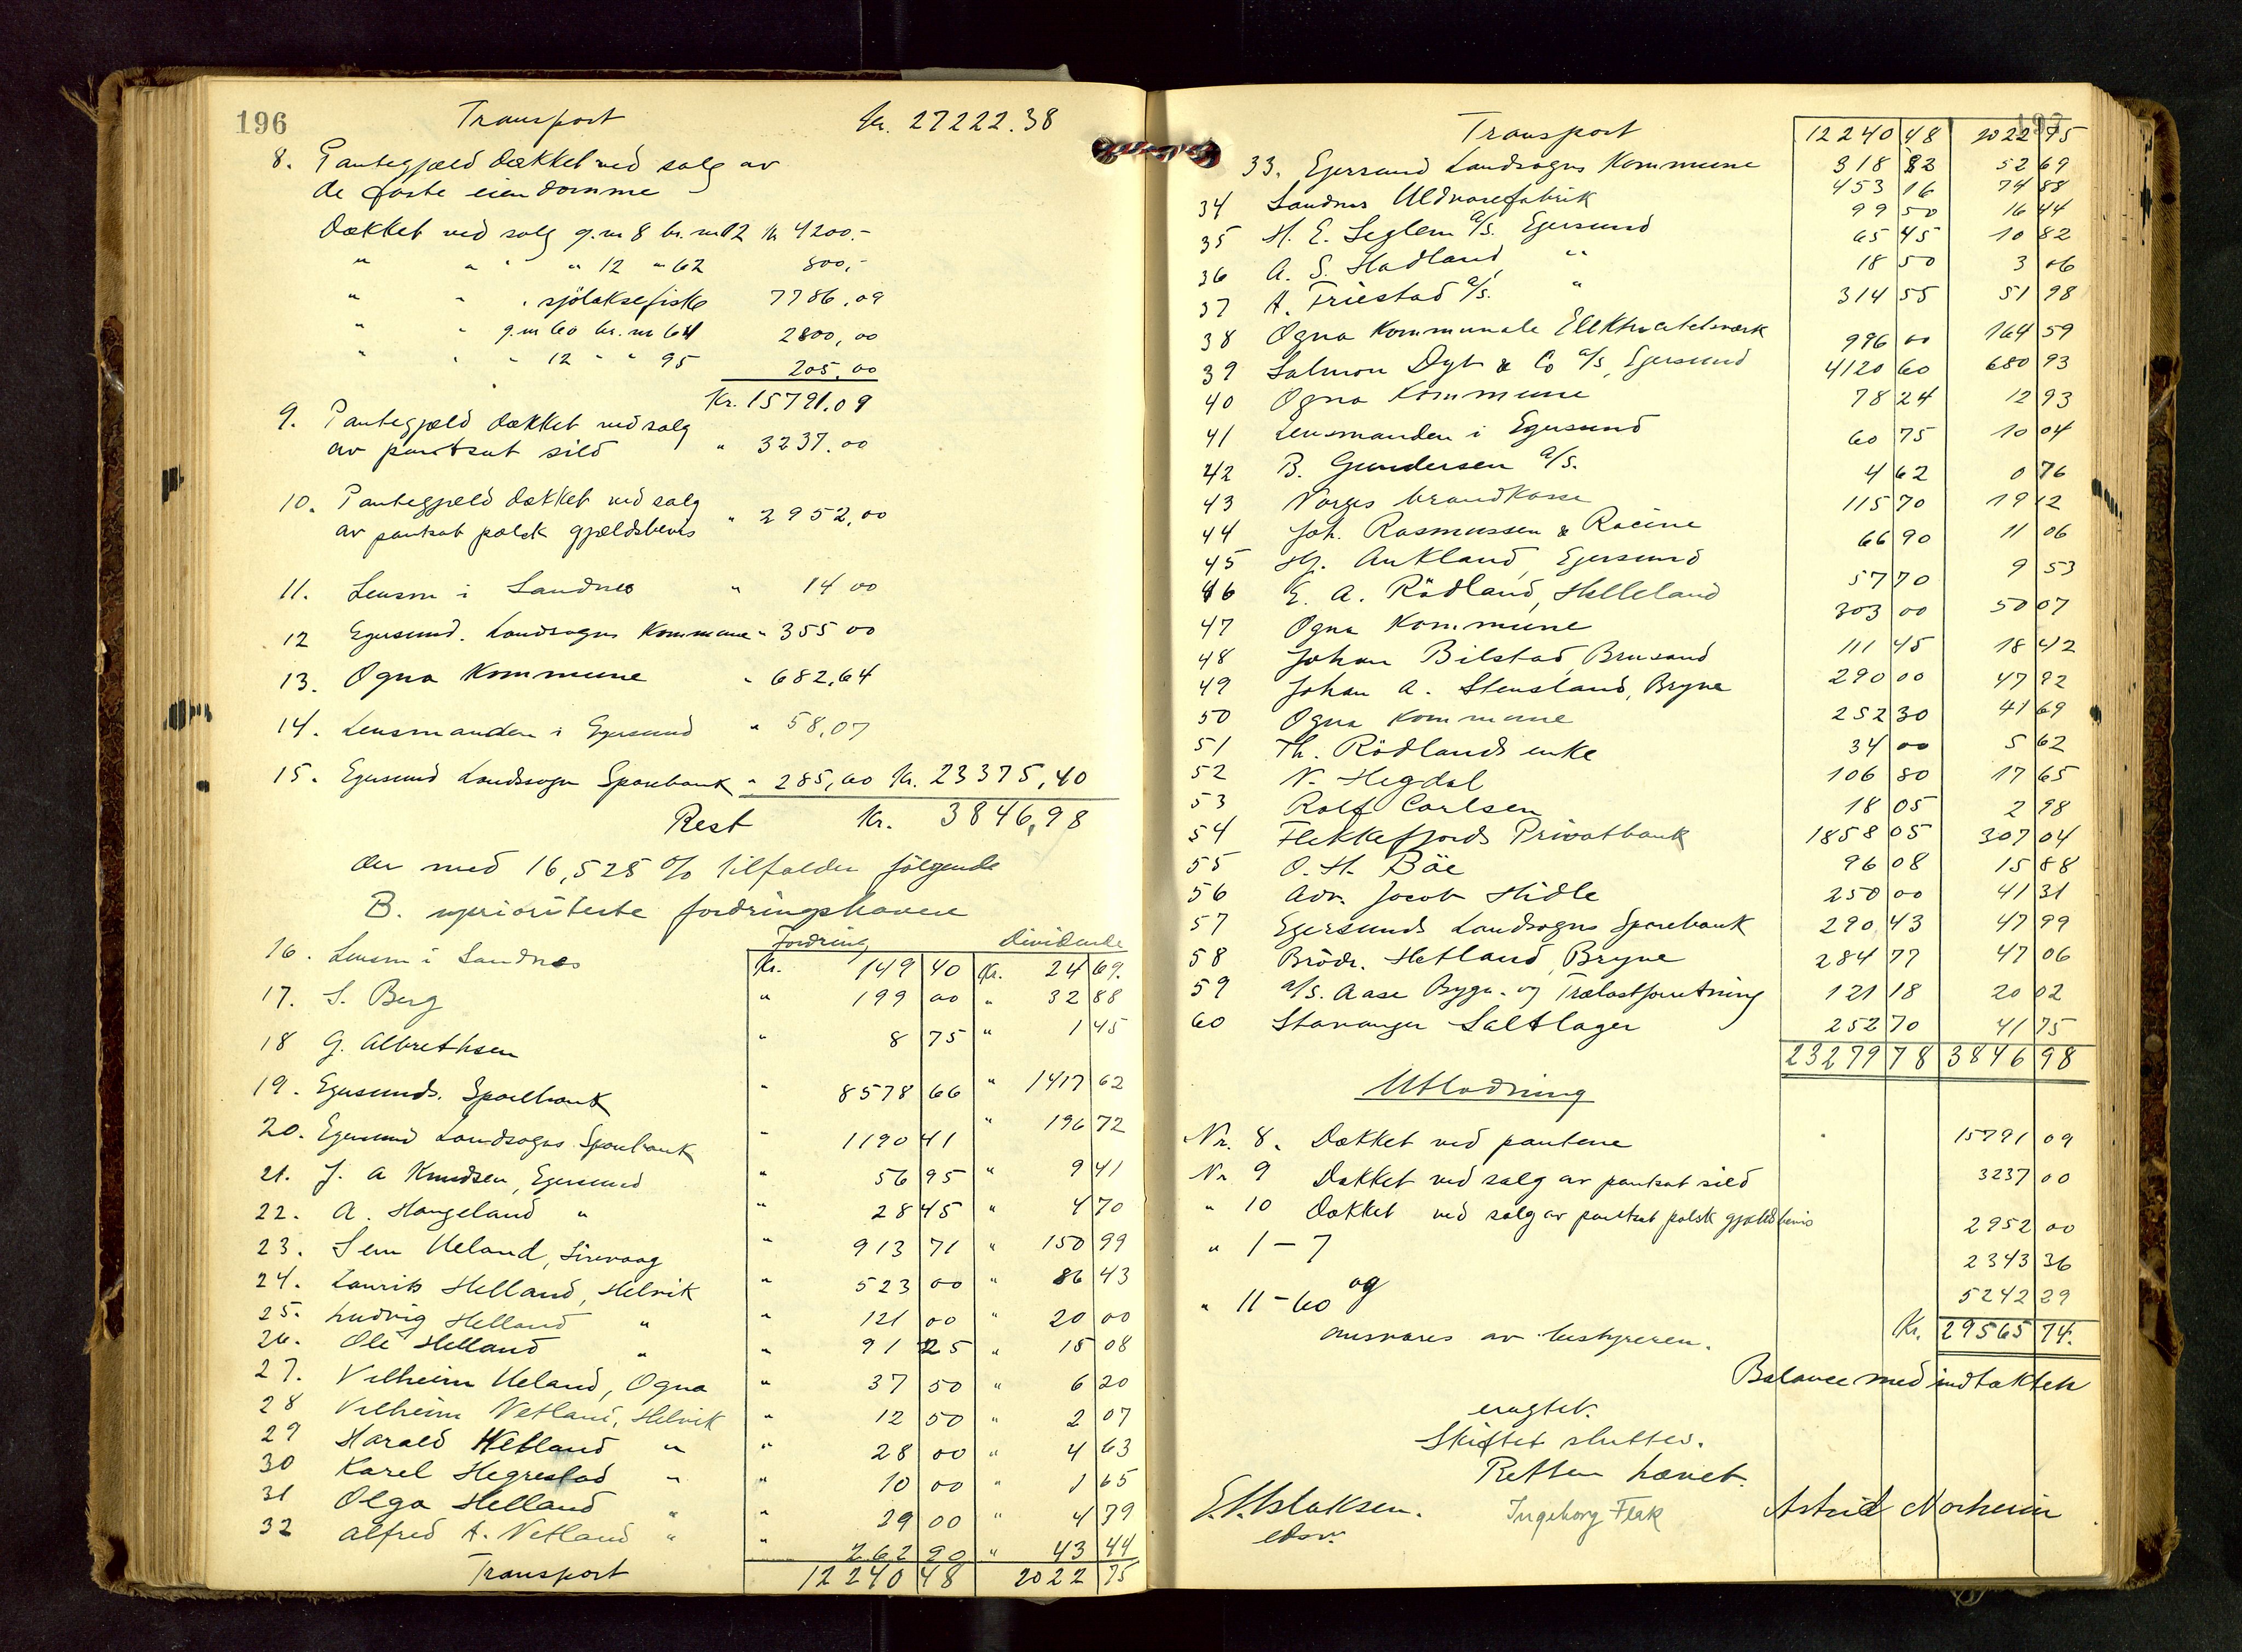 196
Transport Kr. 27222.38
8. Pantegjæld dækket ved salg av
de faste eiendomme
Dækket ved salg g.nr 8 br.nr 12 Kr 4200.-
" " " " 12 " 62 800,-
" " " sjölaksefiske 7786,09
" " g.nr 60 br.nr 64 2800,00
" " " 12 " " 95 205,00
Kr. 15791.09
9. Pantegjæld dækket ved salg
av pantsat sild " 3237.00
10. Pantegjæld dækket ved salg
av pantsat polsk gjældsbevis " 2952,00
11. Lensm i Sandnes " 14 00
12 Egersund. Landsogns Kommune " 355 00
13. Ogna Kommune " 682,64
14. Lensmanden i Egersund " 58,07
15. Egersund Landsogn Sparebank " 285,60 Kr. 23375,40
Rest Kr. 3846,98
der med 16,525 % tilfalder følgende
B. uprioriterte fordringshavere
Fordring Dividende
16. Lensm i Sandnes Kr. 149 40 Kr. 24 69.
17. S. Berg " 199 00 " 32 88
18 G. Albrethsen " 8 75 " 1 45
19. Egersunds. Sparebank " 8578 66 " 1417 62
20. Egersund Landsogns Sparebank " 1190 41 " 196 72
21. J. A Knudsen, Egersund " 56 95 " 9 41
22. A. Haugeland " " 28 45 " 4 70
23. Sem Ueland, Sirevaag " 913 71 " 150 99
24. Laurits Helland, Helvik " 523 00 " 86 43
25. Ludvig Helland " " 121 00 " 20 00
26. Ole Helland " " 91 25 " 15 08
27. Vilheim Ueland, Ogna " 37 50 " 6 20
28 Vilheim Vetland, Helvik " 12 50 " 2 07
29 Harald Hetland " " 28 00 " 4 63
30 Karel Hegrestad " " 10 00 " 1 65
31 Olga Helland " " 29 00 " 4 79
32 Alfred A. Vetland " " 262 90 " 43 44
Transport 12240 48 2022 75
197
Transport 12240 48 2022 75
33. Egersund Landsogns Kommune 318 82 52 69
34 Sandnes Uldvarefabrik 453 16 74 88
35 H. E. Seglem A/S. Egersund 99 50 16 44
36 A. S. Hadland, " 65 45 10 82
37 A. Friestad A/S. " 18 50 3 06
38 Ogna Kommunale Elektricitetsværk 314 55 51 98
39 Salmon Dyb & Co A/S, Egersund 996 00 164 59
40 Ogna Kommune 4120 60 680 93
41 Lensmanden i Egersund 78 24 12 93
42 B. Gundersen A/S. 60 75 10 04
43 Norges brandkasse 4 62 0 76
44 Joh. Rasmussen & Racine 115 70 19 12
45 Hj. Aukland, Egersund 66 90 11 06
46 E. A. Rödland, Helleland 57 70 9 53
47 Ogna Kommune 303 00 50 07
48 Johan Bilstad Brusand 111 45 18 42
49 Johan A. Stensland, Bryne 290 00 47 92
50 Ogna Kommune 252 30 41 69
51 Th. Rödlands enke 34 00 5 62
52 N. Hegdal 106 80 17 65
53 Rolf Carlsen 18 05 2 98
54 Flekkefjords Privatbank 1858 05 307 04
55 O. H. Böe 96 08 15 88
56 Adv. Jacob Hidle 250 00 41 31
57 Egersunds Landsogns Sparebank 290 43 47 99
58 Brödr. Hetland, Bryne 284 77 47 06
59 A/S. Aase Bygn- og Trælastforretning 121 18 20 02
60 Stavanger Saltlager 252 70 41 75
23279 78 3846 98
Utlodning
Nr. 8. Dækket ved pantene 15791 09
Nr 9 Dækket ved salg av pantsat sild 3237 00
" 10 Dækket ved salg av pantsat polsk gjældsbevis 2952 00
" 1 – 7 2343 36
og
" 11 – 60 5242 29
ansvares av bestyreren. Kr. 29565 74.
Balance med indtækten
erugtet.
Skiftet sluttes.
Retten hævet.
E. Aslaksen. Ingeborg Flak Astrid Norheim
edsv.